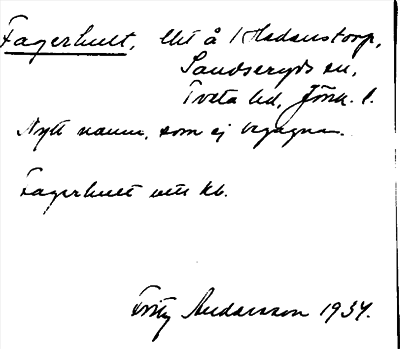 Fagerhult, lht å 1 Hadarstorp,
Sandseryds sn,
Tveta hd, Jönk. l.
Nytt namn, som ej begagnas.
Fagerhult enl kb.
Fritz Andersson 1934.